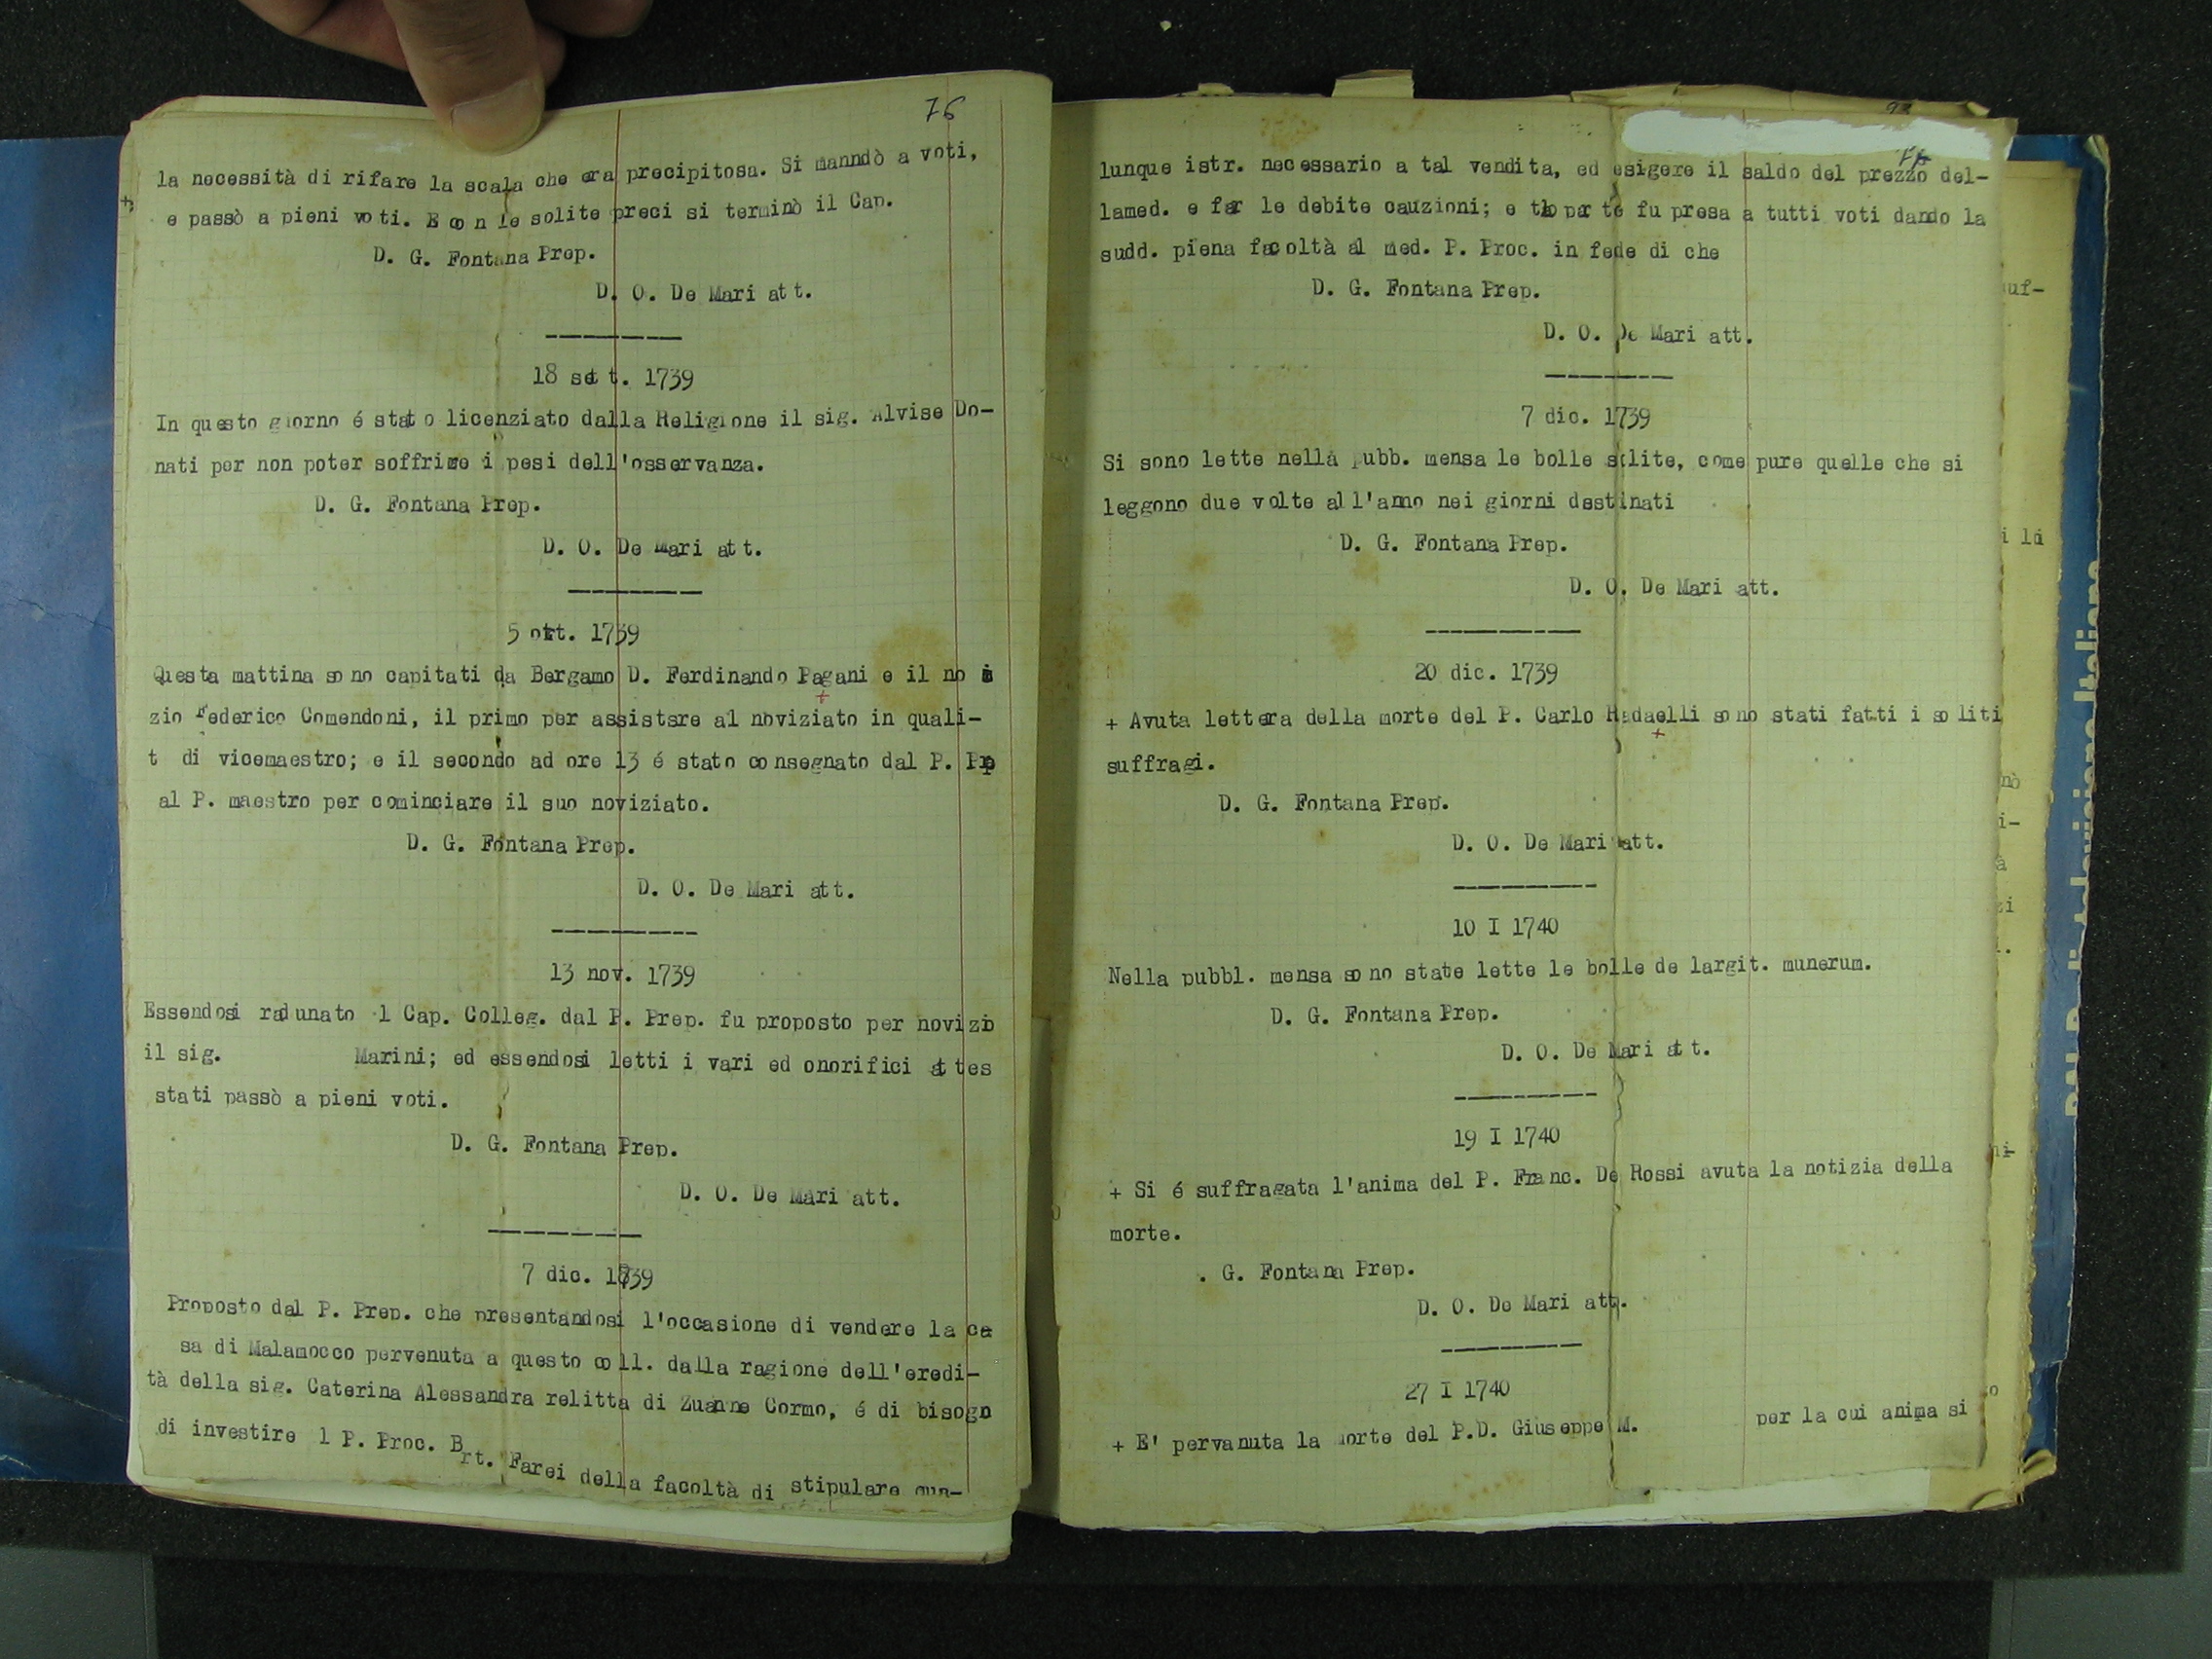 76
la necessità di rifare la scala che era precipitosa. Si manndò a voti,
e passò a pieni voti. E con le solite preci si terminò il Cap.
D. G. Fontana Prep.
D. O. De Mari att.
----------
18 sett. 1739
In questo giorno é stato licenziato dalla Religione il sig. Alvise Do-
nati per non poter soffrire i pesi dell'osservanza.
D. G. Fontana Prep.
D. O. De Mari att.
----------
5 ott. 1739
Questa mattina sono capitati da Bergamo D. Ferdinando Pagani e il no
zio Federico Comendoni, il primo per assistere al noviziato in quali-
t di vicemaestro; e il secondo ad ore 13 é stato consegnato dal P. Prp
al P. maestro per cominciare il suo noviziato.
D. G. Fontana Prep.
D. O. De Mari att.
----------
13 nov. 1739
Essendosi radunato l Cap. Colleg. dal P. Prep. fu proposto per novizio
il sig. Marini; ed essendosi letti i vari ed onorifici attes
stati passò a pieni voti.
D. G. Fontana Prep.
D. O. De Mari att.
----------
7 dic. 1739
Proposto dal P. Prep. che presentandosi l'occasione di vendere la ca
sa di Malamocco pervenuta a questo coll. dalla ragione dell'eredi-
tà della sig. Caterina Alessandra relitta di Zuanne Cormo, é di bisogno
di investire l P. Proc. Brt. Farei della facoltà di stipulare qua-
lunque istr. necessario a tal vendita, ed esigere il saldo del prezzo del-
lamed. e far le debite cauzioni; e parte fu presa a tutti voti dando la
sudd. piena facoltà al med. P. Proc. in fede di che
D. G. Fontana Prep.
D. O. De Mari att.
----------
7 dic. 1739
Si sono lette nella pubb. mensa le bolle solite, come pure quelle che si
leggono due volte all'anno nei giorni destinati
D. G. Fontana Prep.
D. O. De Mari att.
----------
20 dic. 1739
+ Avuta lettera della morte del P. Carlo Radaelli sono stati fatti i soliti
suffragi.
D. G. Fontana Prep.
D. O. De Mari att.
----------
10 I 1740
Nella pubbl. mensa sono state lette le bolle de largit. munerum.
D. G. Fontana Prep.
D. O. De Mari att.
----------
19 I 1740
+ Si é suffragata l'anima del P. Franc. De Rossi avuta la notizia della
morte.
. G. Fontana Prep.
D. O. De Mari att.
----------
27 I 1740
+ E' pervanuta la morte del P.D. Giuseppe M. per la cui anima si